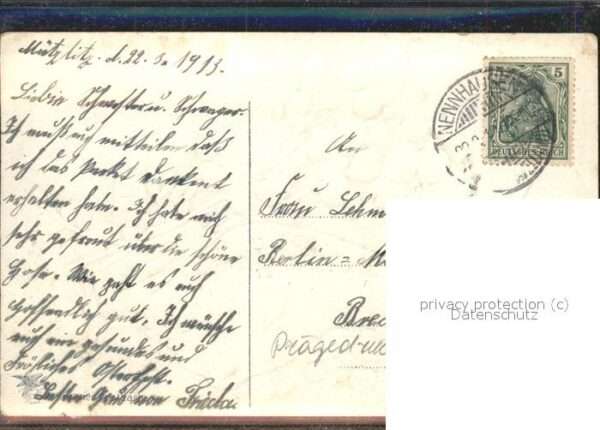 Mützlitz. d. 22. 3. 1913.
Liebe Schwester u. Schwager.
Ich muß euch mitteilen daß
ich das Packet dankent
erhalten habe. Ich habe mich
sehr gefreut über die schöne
Hose. Wie geht es euch
hoffendlich gut. Ich wünsche
euch ein gesundes und
Fröhliches Osterfest.
Besten Gruß von Frieda
NENNHAUSEN
5
DEUTSCHES REICH
An
Frau Lehm
Berlin=
Präged
privacy protection (c)
Datenschutz